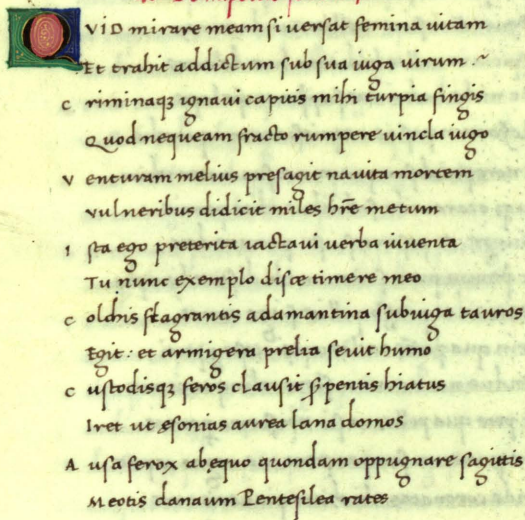 QVID mirare meam si versat femina vitam
Et trahit addictum sub sua iuga virum
Criminaq; ignavi capitis mihi turpia fingis
Quod nequeam fracto rumpere vincla iugo
Venturam melius presagit navita mortem
Vulneribus didicit miles hr̄e metum
Ista ego preterita iactavi verba iuventa
Tu nunc exemplo disce timere meo
Colchis flagrantis adamantina sub iuga tauros
Egit: et armigera prelia sevit humo
Custodisq; feros clausit s̄pentis hiatus
Iret ut ęsonias aurea lana domos
Ausa ferox ab equo quondam oppugnare sagittis
Meotis danaum Pentesilea rates